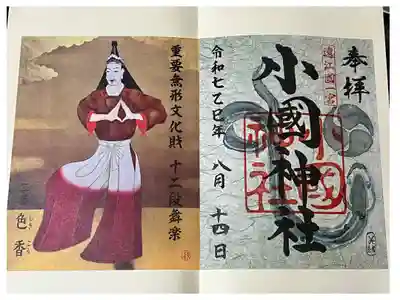 奉拝
遠江國一宮
小國神社
令和七乙巳年 八月 十四日
重要無形文化財 十二段舞楽
二番
色香
しき
こう